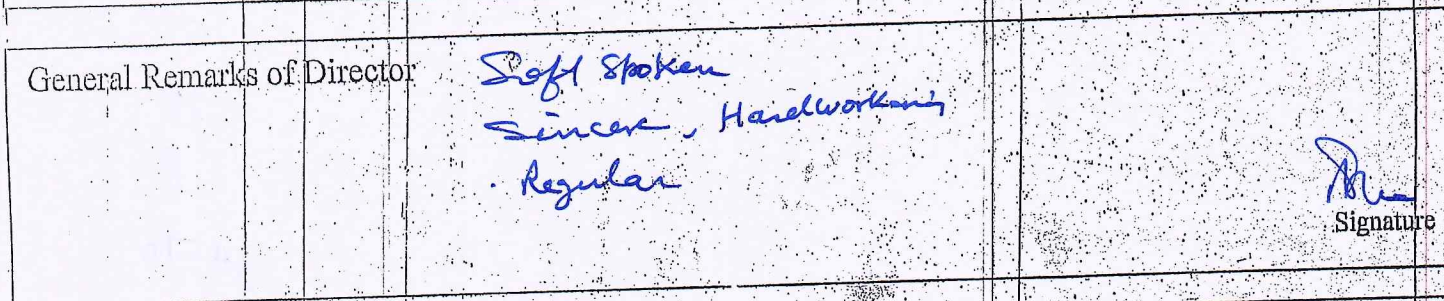 General Remarks of Director
Soft Spoken
Sincere, Hardworking
. Regular
Signature